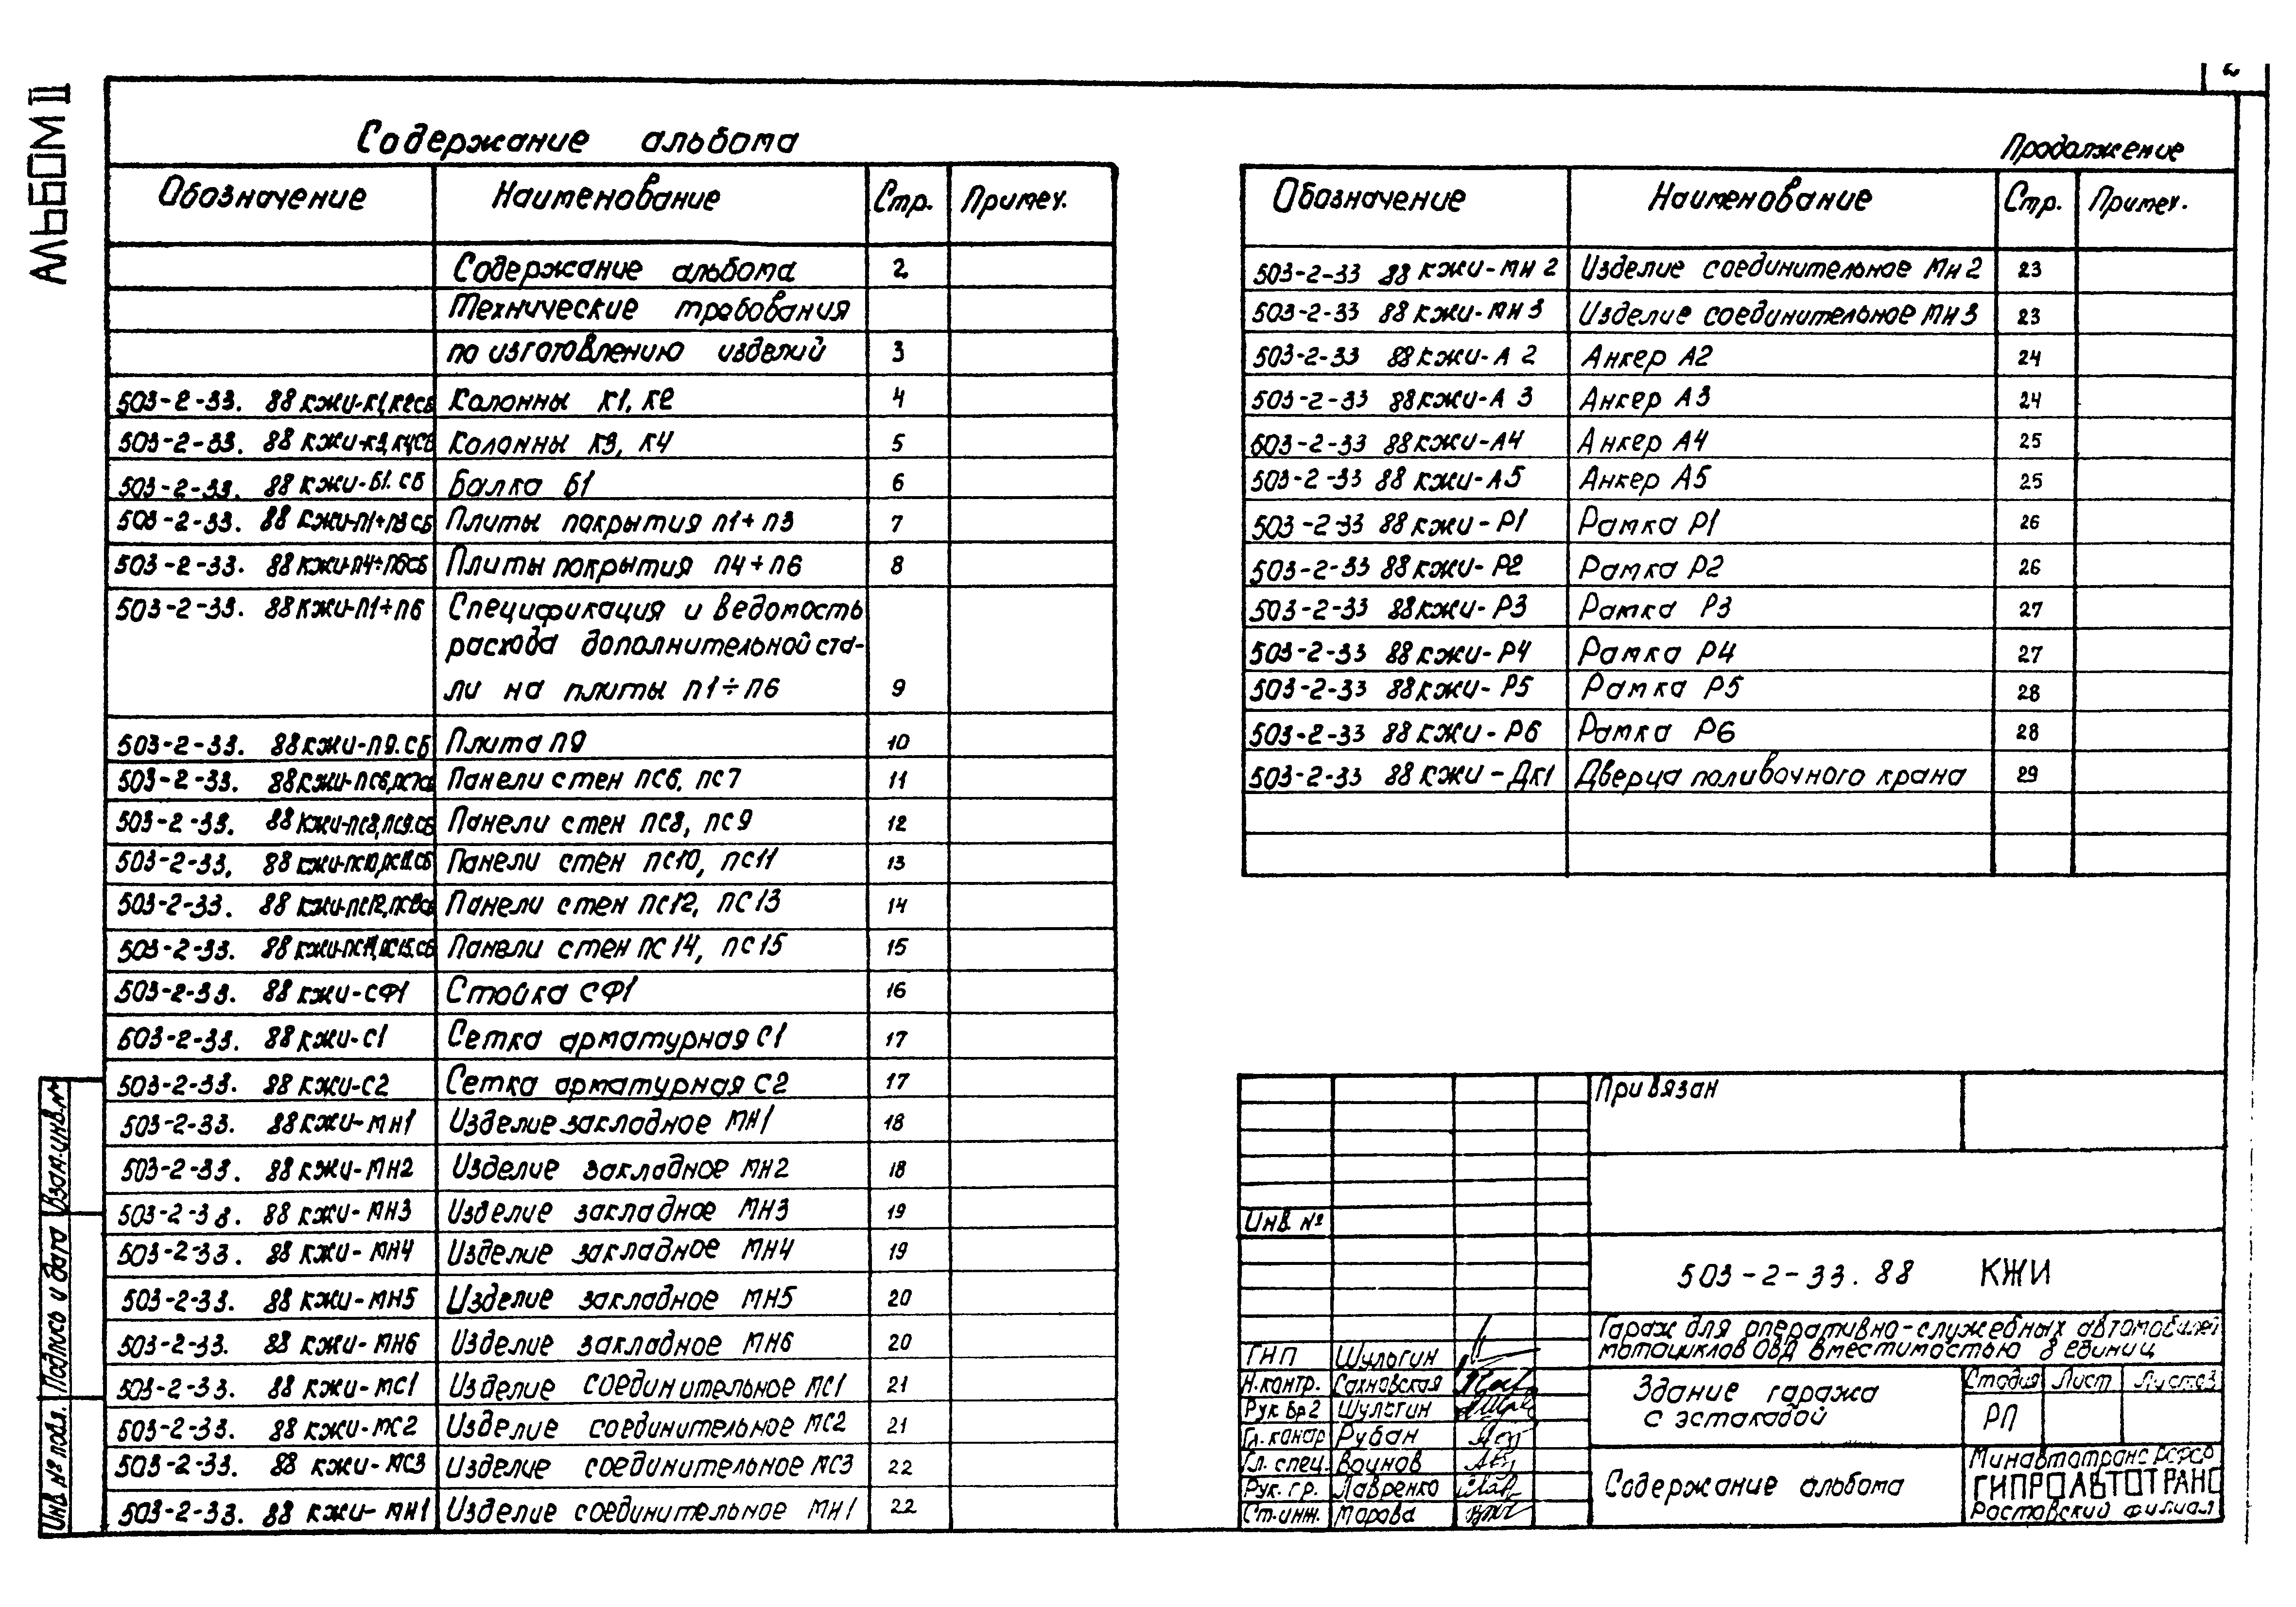 АЛЬБОМ II
2
Содержание альбома
Обозначение Наименование Стр. Примеч.
Содержание альбома 2
Технические требования
по изготовлению изделий 3
503-2-33. 88 КЖИ-К1,К2СБ Колонны К1, К2 4
503-2-33. 88 КЖИ-К3,К4СБ Колонны К3, К4 5
503-2-33. 88 КЖИ-Б1.СБ Балка Б1 6
503-2-33. 88 КЖИ-П1÷П3СБ Плиты покрытия П1÷П3 7
503-2-33. 88 КЖИ-П4÷П6СБ Плиты покрытия П4÷П6 8
503-2-33. 88 КЖИ-П1÷П6 Спецификация и ведомость
расхода дополнительной ста-
ли на плиты П1÷П6 9
503-2-33. 88 КЖИ-П9.СБ Плита П9 10
503-2-33. 88 КЖИ-ПС6,ПС7СБ Панели стен ПС6, ПС7 11
503-2-33. 88 КЖИ-ПС8,ПС9.СБ Панели стен ПС8, ПС9 12
503-2-33. 88 КЖИ-ПС10,ПС11.СБ Панели стен ПС10, ПС11 13
503-2-33. 88 КЖИ-ПС12,ПС13СБ Панели стен ПС12, ПС13 14
503-2-33. 88 КЖИ-ПС14,ПС15.СБ Панели стен ПС14, ПС15 15
503-2-33. 88 КЖИ-СФ1 Стойка СФ1 16
503-2-33. 88 КЖИ-С1 Сетка арматурная С1 17
503-2-33. 88 КЖИ-С2 Сетка арматурная С2 17
503-2-33. 88 КЖИ-МН1 Изделие закладное МН1 18
503-2-33. 88 КЖИ-МН2 Изделие закладное МН2 18
503-2-33. 88 КЖИ-МН3 Изделие закладное МН3 19
503-2-33. 88 КЖИ-МН4 Изделие закладное МН4 19
503-2-33. 88 КЖИ-МН5 Изделие закладное МН5 20
503-2-33. 88 КЖИ-МН6 Изделие закладное МН6 20
503-2-33. 88 КЖИ-МС1 Изделие соединительное МС1 21
503-2-33. 88 КЖИ-МС2 Изделие соединительное МС2 21
503-2-33. 88 КЖИ-МС3 Изделие соединительное МС3 22
503-2-33. 88 КЖИ-МН1 Изделие соединительное МН1 22
Продолжение
Обозначение Наименование Стр. Примеч.
503-2-33 88 КЖИ-МН2 Изделие соединительное МН2 23
503-2-33 88 КЖИ-МН3 Изделие соединительное МН3 23
503-2-33 88 КЖИ-А2 Анкер А2 24
503-2-33 88 КЖИ-А3 Анкер А3 24
503-2-33 88 КЖИ-А4 Анкер А4 25
503-2-33 88 КЖИ-А5 Анкер А5 25
503-2-33 88 КЖИ-Р1 Рамка Р1 26
503-2-33 88 КЖИ-Р2 Рамка Р2 26
503-2-33 88 КЖИ-Р3 Рамка Р3 27
503-2-33 88 КЖИ-Р4 Рамка Р4 27
503-2-33 88 КЖИ-Р5 Рамка Р5 28
503-2-33 88 КЖИ-Р6 Рамка Р6 28
503-2-33 88 КЖИ-ДК1 Дверца поливочного крана 29
Привязан
Инв №
503-2-33.88 КЖИ
Гараж для оперативно-служебных автомобилей
мотоциклов ОВД вместимостью 8 единиц
ГНП Шульгин
Н.контр. Сахновская
Рук бр2 Шульгин
Гл.констр Рубан
Гл. спец. Воинов
Рук. гр. Лавренко
Ст.инж. Марова
Здание гаража
с эстакадой
Стадия Лист Листов
РП
Содержание альбома
Минавтотранс РСФСР
ГИПРОАВТОТРАНС
Ростовский филиал
Взам.инв.№
Подпись и дата
Инв № подл.